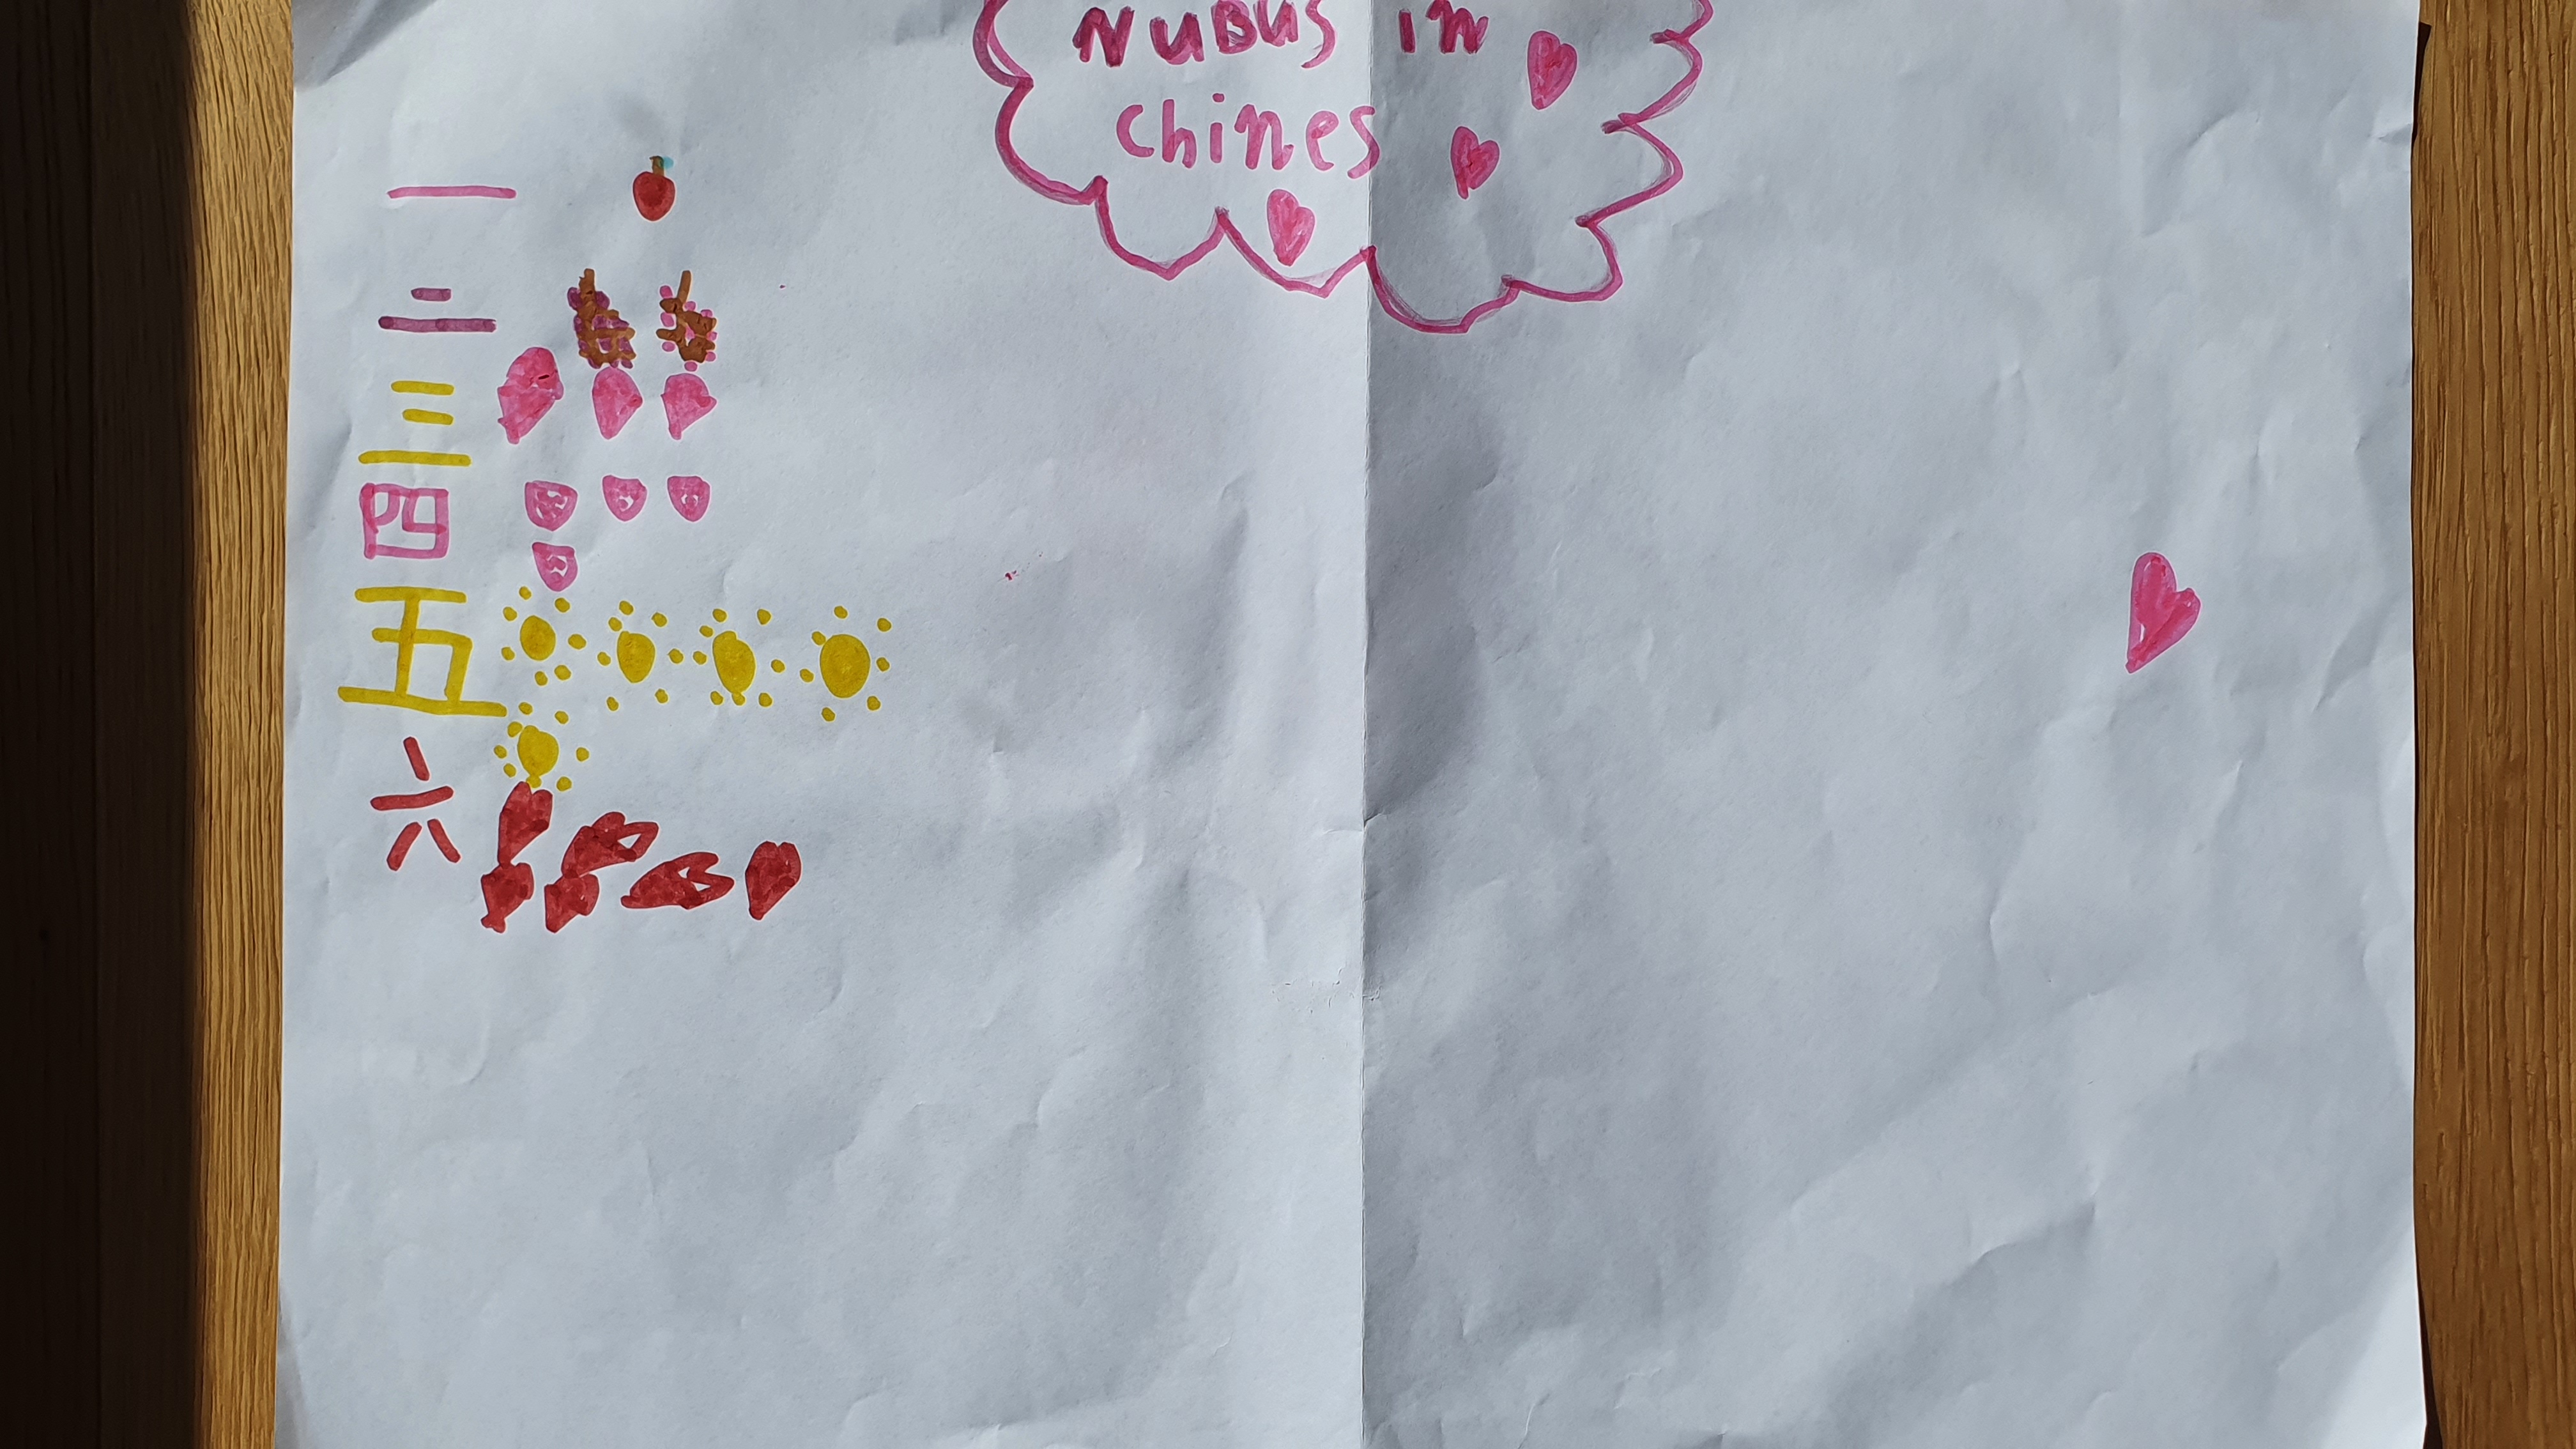 NUBUS IN
chines
一
二
三
四
五
六